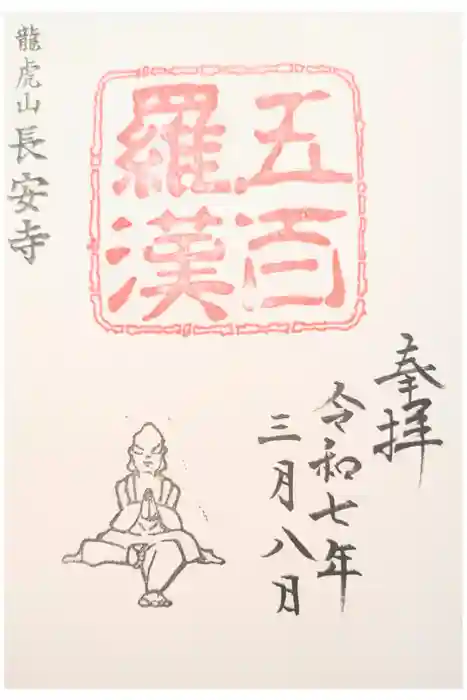 奉拝
令和七年
三月八日
五百
羅漢
龍虎山長安寺